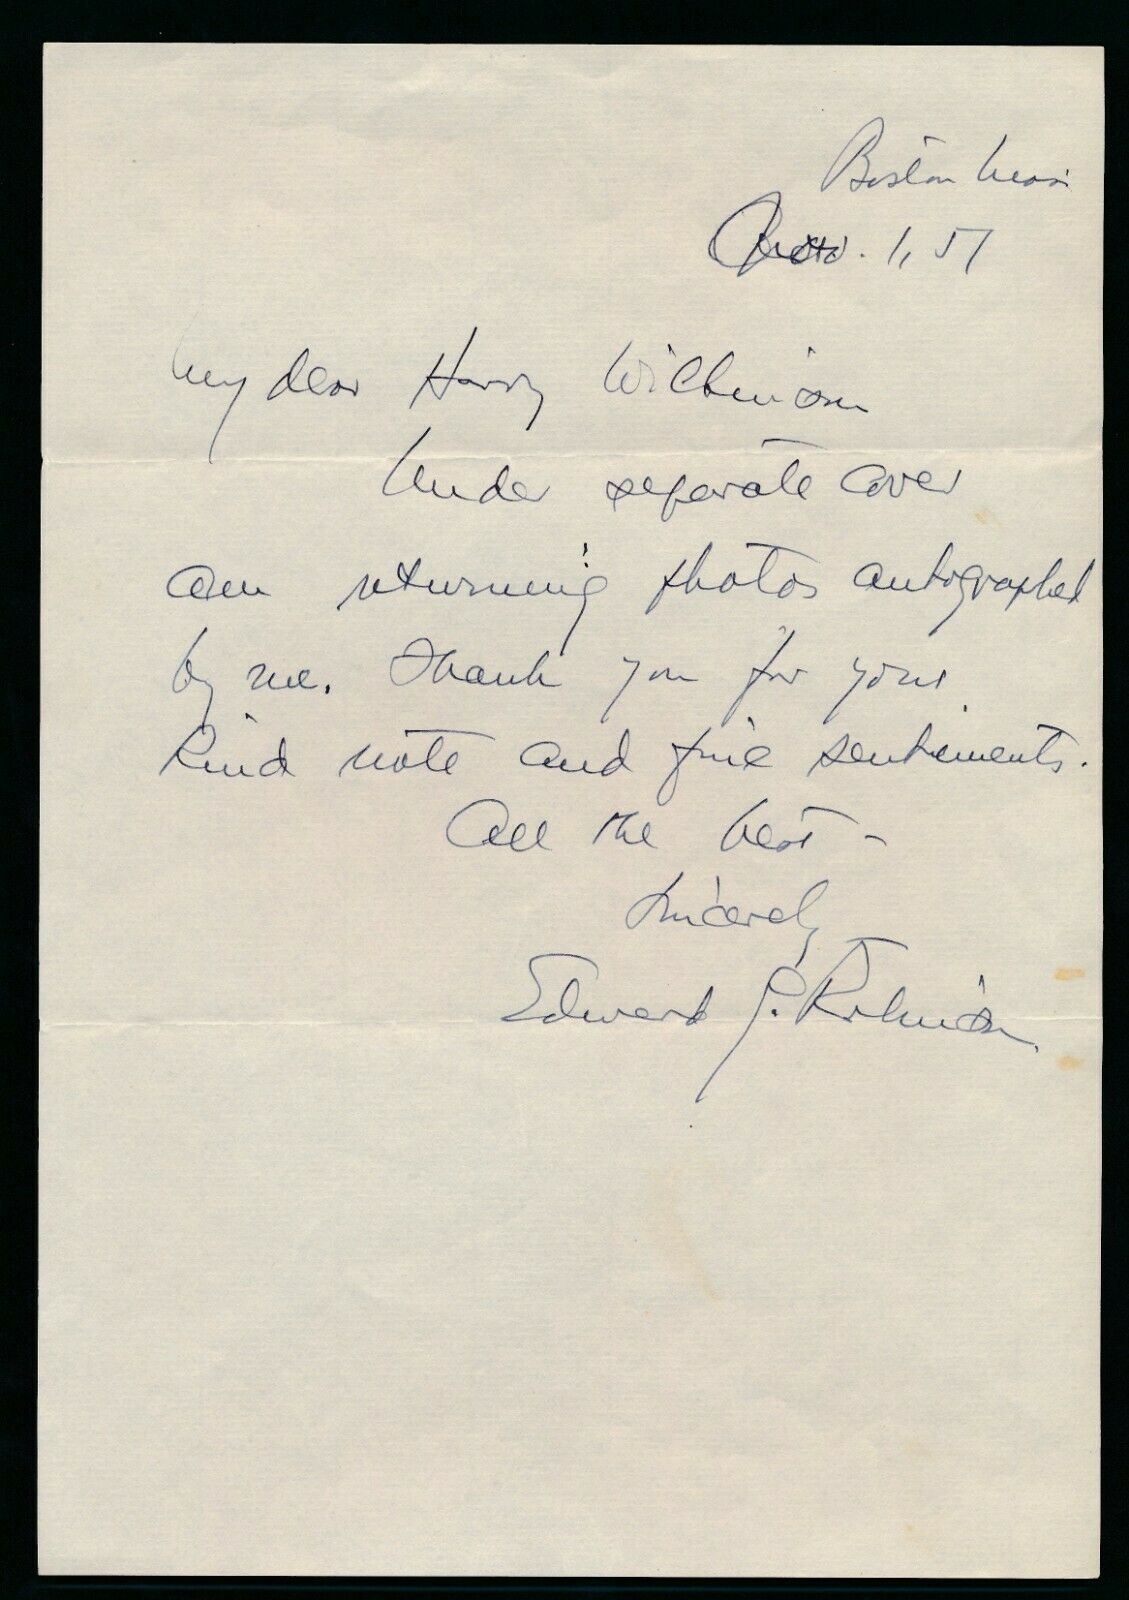 Boston Mass
Nov. 1, 57
My dear Harry Wilkinson
Under separate cover
am returning photos autographed
by me. Thank you for your
kind note and fine sentiments.
All the best –
Sincerely
Edward G. Robinson.